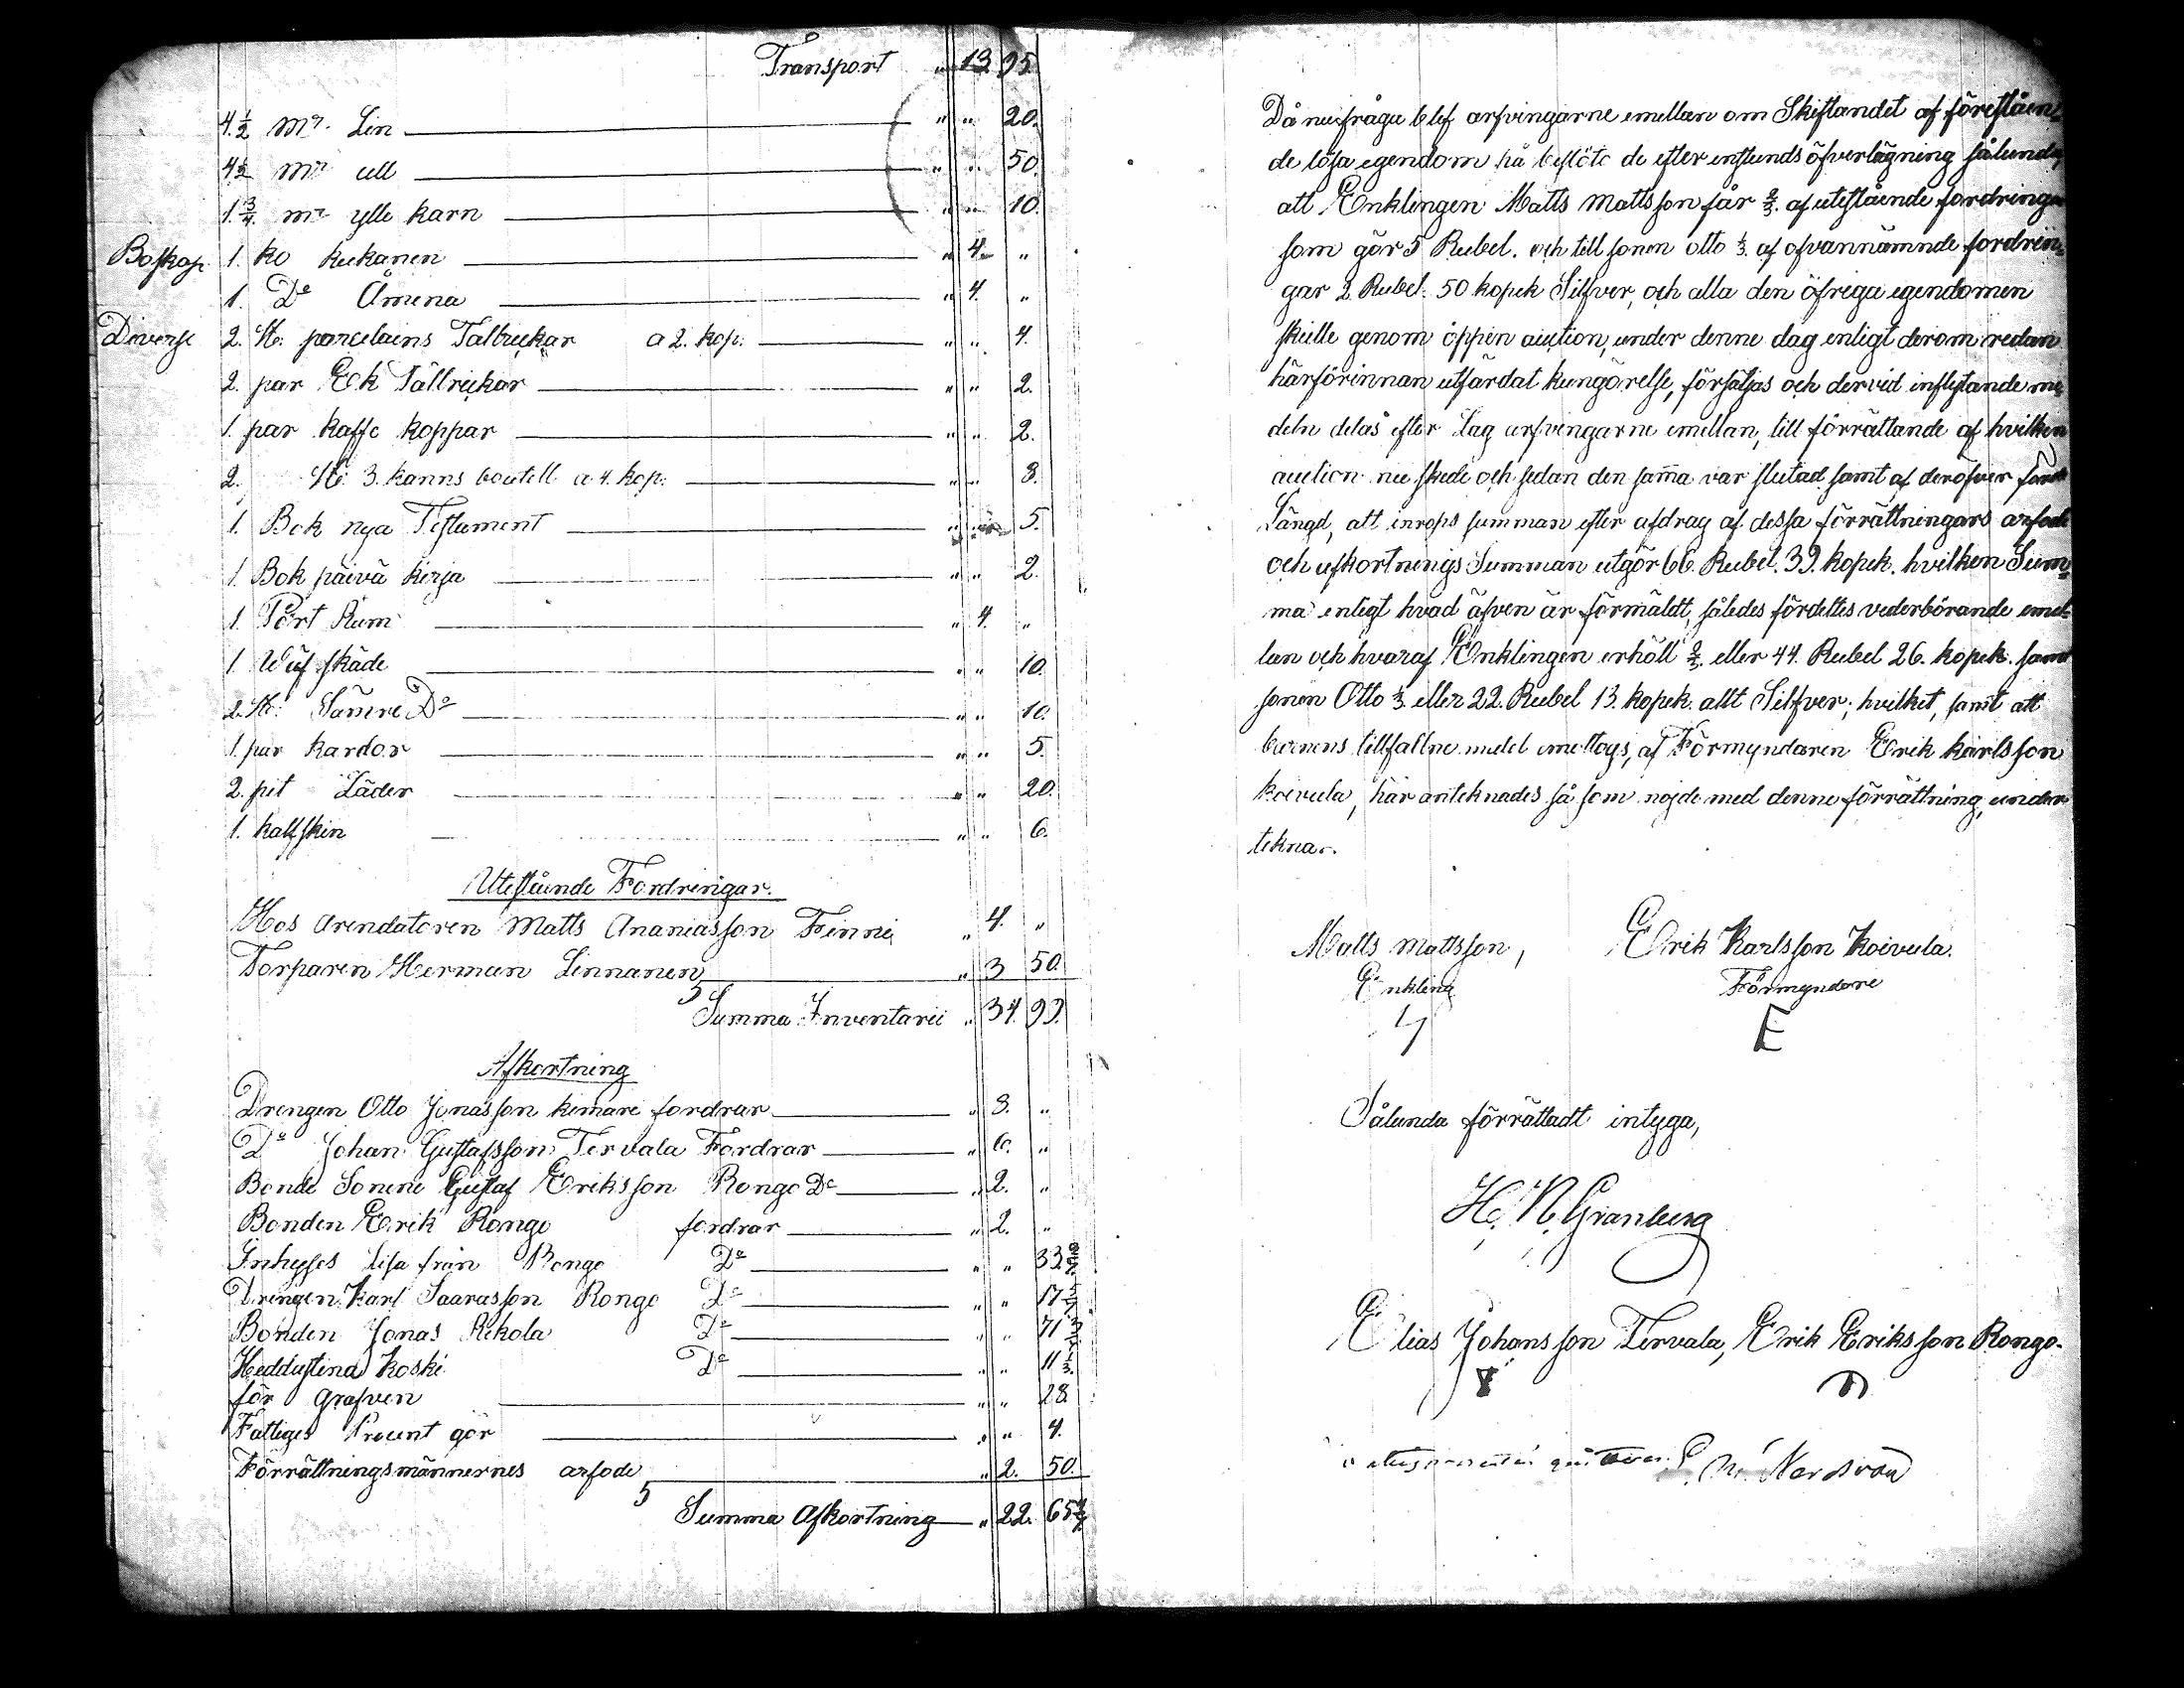 Transport " 13. 95.
4 1/2 Mr. Lin " " 20.
4 1/2 Mr ull " " 50.
1. 3/4 mr ylle karn " " 10.
Boskap 1. ko kukanen " 4. "
1. Do Ämena " 4. "
Diverse 2. St: porcelains Tallrickar a 2. kop: " " 4.
2. par Ek Tällrickar " " 2.
1. par kaffe koppar " " 2.
2. St: 3. kanns boutell a 4. kop: " " 8.
1. Bok nya Testament " " 5.
1. Bok päivä kirja " " 2.
1. Pört Rum " 4. "
1. Wäf skäde " " 10.
2. St: Sämre Do " " 10.
1. par kardor " " 5.
2. pit Läder " " 20.
1. kalfskin " " 6.
Utestående Fordringar.
Hos Arendatoren Matts Ananiasson Finni " 4. "
Torparen Herman Linnanen " 3 50.
Summa Inventarii " 34. 99.
Afkortning
Drengen Otto Jonasson kimari fordrar " 8. "
Do Johan Gustafsson Tervala Fordrar " 6. "
Bonde Sonene Gustaf Eriksson Rongo Do " 2. "
Bonden Erik Rongo fordrar " 2. "
Inhyses Lisa från Rongo Do " "
Drengen Karl Saarasson Rongo Do " "
Bonden Jonas Rekola Do " "
Heddustina Koski Do " " 11 1/3.
för Grafven " " 28.
Fattiges Procent gör " " 4.
Förrättningsmännernes arfode " 2. 50.
Summa Afkortning " 22.
Då nu fråga blef arfvingarne emellan om Skiftandet af föreståen=
de lösa egendom så beslöto de efter enstunds öfverlägning sålunda
att Enklingen Matts Mattsson får 2/3. af utestående fordringar
som gör 5 Rubel. och till sonen Otto 1/3. af ofvannämnde fordrin=
gar 2 Rubel. 50 kopek Silfver, och alla den öfriga egendomen
skulle genom öppen auction, under denne dag enligt derom redan
härförinnan utfärdat kungörelse, försäljas och dervid inflytande me=
deln delas efter Lag arfvingarne emellan, till förrättande af hvilken
auction nu skedi och sedan den samma var slutad samt af deröfver
Längd, att inrops summan efter afdrag af dessa förrättningars arfode
och afkortnings Summan utgör 66. Rubel. 39. kopek. hvilken Sum=
ma enligt hvad äfven är förmäldt, således fördeltes vederbörande emel=
lan och hvaraf Enklingen erhöll 2/3. eller 44. Rubel 26. kopek. samt
sonen Otto 1/3. eller 22. Rubel 13. kopek. allt Silfver; hvilket, samt att
barnens tillfallne medel emottogs, af Förmyndaren Erik karlsson
koivula, här anteknades så som nöjde med denne förrättning, under
teknar.
Matts Mattsson, Erik Karlsson Koivula.
Enkling Förmyndare
E
Sålunda förrättadt intyga,
H. N. Granberg
Elias Johansson Tervala, Erik Eriksson Rongo.